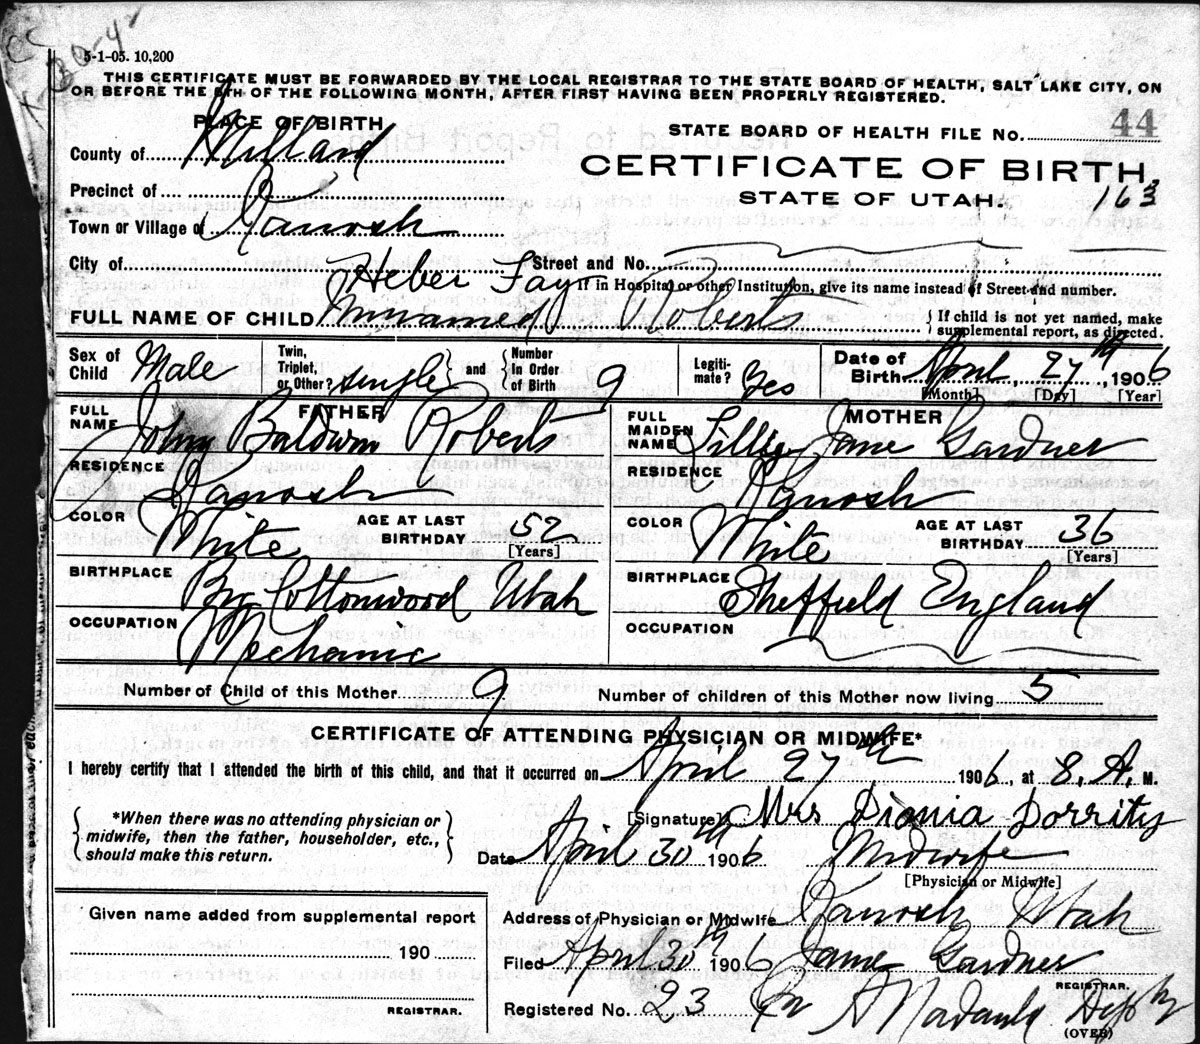 5-1-05. 10,200
THIS CERTIFICATE MUST BE FORWARDED BY THE LOCAL REGISTRAR TO THE STATE BOARD OF HEALTH, SALT LAKE CITY, ON
OR BEFORE THE 5TH OF THE FOLLOWING MONTH, AFTER FIRST HAVING BEEN PROPERLY REGISTERED.
PLACE OF BIRTH
STATE BOARD OF HEALTH FILE No. 44
County of Millard
CERTIFICATE OF BIRTH.
Precinct of
STATE OF UTAH. 163
Town or Village of Kanosh
City of Street and No.
Heber Fay
If in Hospital or other Institution, give its name instead of Street and number.
FULL NAME OF CHILD Unnamed Roberts
{ If child is not yet named, make
supplemental report, as directed.
Sex of Child Male
Twin, Triplet, or Other? single } and { Number In Order of Birth 9
Legiti-mate? Yes
Date of Birth April, 27th, 1906
[Month] [Day] [Year]
FATHER
FULL NAME John Baldwin Roberts
MOTHER
FULL MAIDEN NAME Lillie Jane Gardner
RESIDENCE Kanosh
RESIDENCE Kanosh
COLOR White AGE AT LAST BIRTHDAY 52 [Years]
COLOR White AGE AT LAST BIRTHDAY 36 [Years]
BIRTHPLACE Big Cottonwood Utah
BIRTHPLACE Sheffield England
OCCUPATION Mechanic
OCCUPATION
Number of Child of this Mother 9 Number of children of this Mother now living 5
CERTIFICATE OF ATTENDING PHYSICIAN OR MIDWIFE*
I hereby certify that I attended the birth of this child, and that it occurred on April 27th 1906, at 8. A. M.
{ *When there was no attending physician or
midwife, then the father, householder, etc.,
should make this return. }
[Signature] Mrs Dionia Dorrity
Date April 30th 1906 Midwife
[Physician or Midwife]
Given name added from supplemental report
190
REGISTRAR.
Address of Physician or Midwife Kanosh Utah
Filed April 30th 1906 Jame Gardner
REGISTRAR.
Registered No. 23
(OVER)